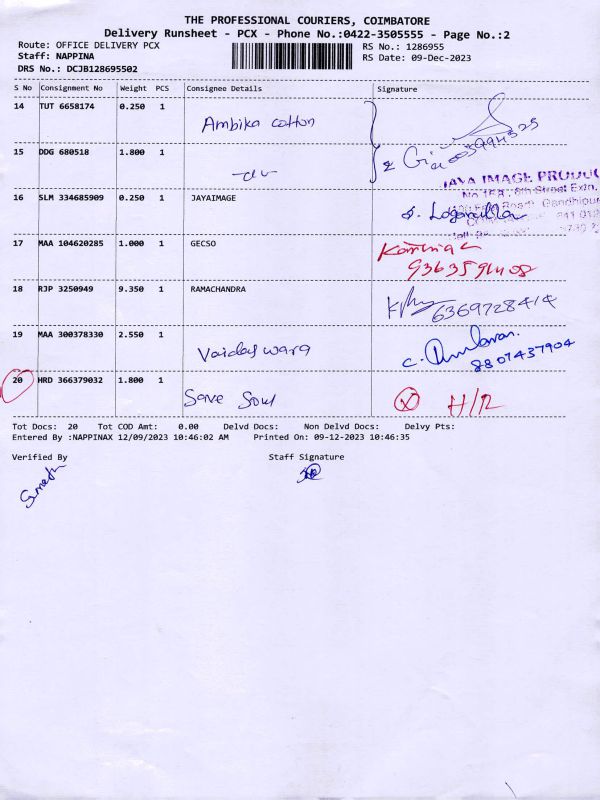 THE PROFESSIONAL COURIERS, COIMBATORE
Delivery Runsheet - PCX - Phone No.:0422-3505555 - Page No.:2
Route: OFFICE DELIVERY PCX
RS No.: 1286955
Staff: NAPPINA
RS Date: 09-Dec-2023
DRS No.: DCJB128695502
S No Consignment No Weight PCS Consignee Details Signature
14 TUT 6658174 0.250 1 Ambika cotton
15 DDG 680518 1.800 1
JAYA IMAGE
16 SLM 334685909 0.250 1 JAYAIMAGE
17 MAA 104620285 1.000 1 GECSO
18 RJP 3250949 9.350 1 RAMACHANDRA 6369728414
19 MAA 300378330 2.550 1 Vaidaswara 8807437904
20 HRD 366379032 1.800 1 Save Soul H/R
Tot Docs: 20 Tot COD Amt: 0.00 Delvd Docs: Non Delvd Docs: Delvy Pts:
Entered By :NAPPINAX 12/09/2023 10:46:02 AM Printed On: 09-12-2023 10:46:35
Verified By Staff Signature